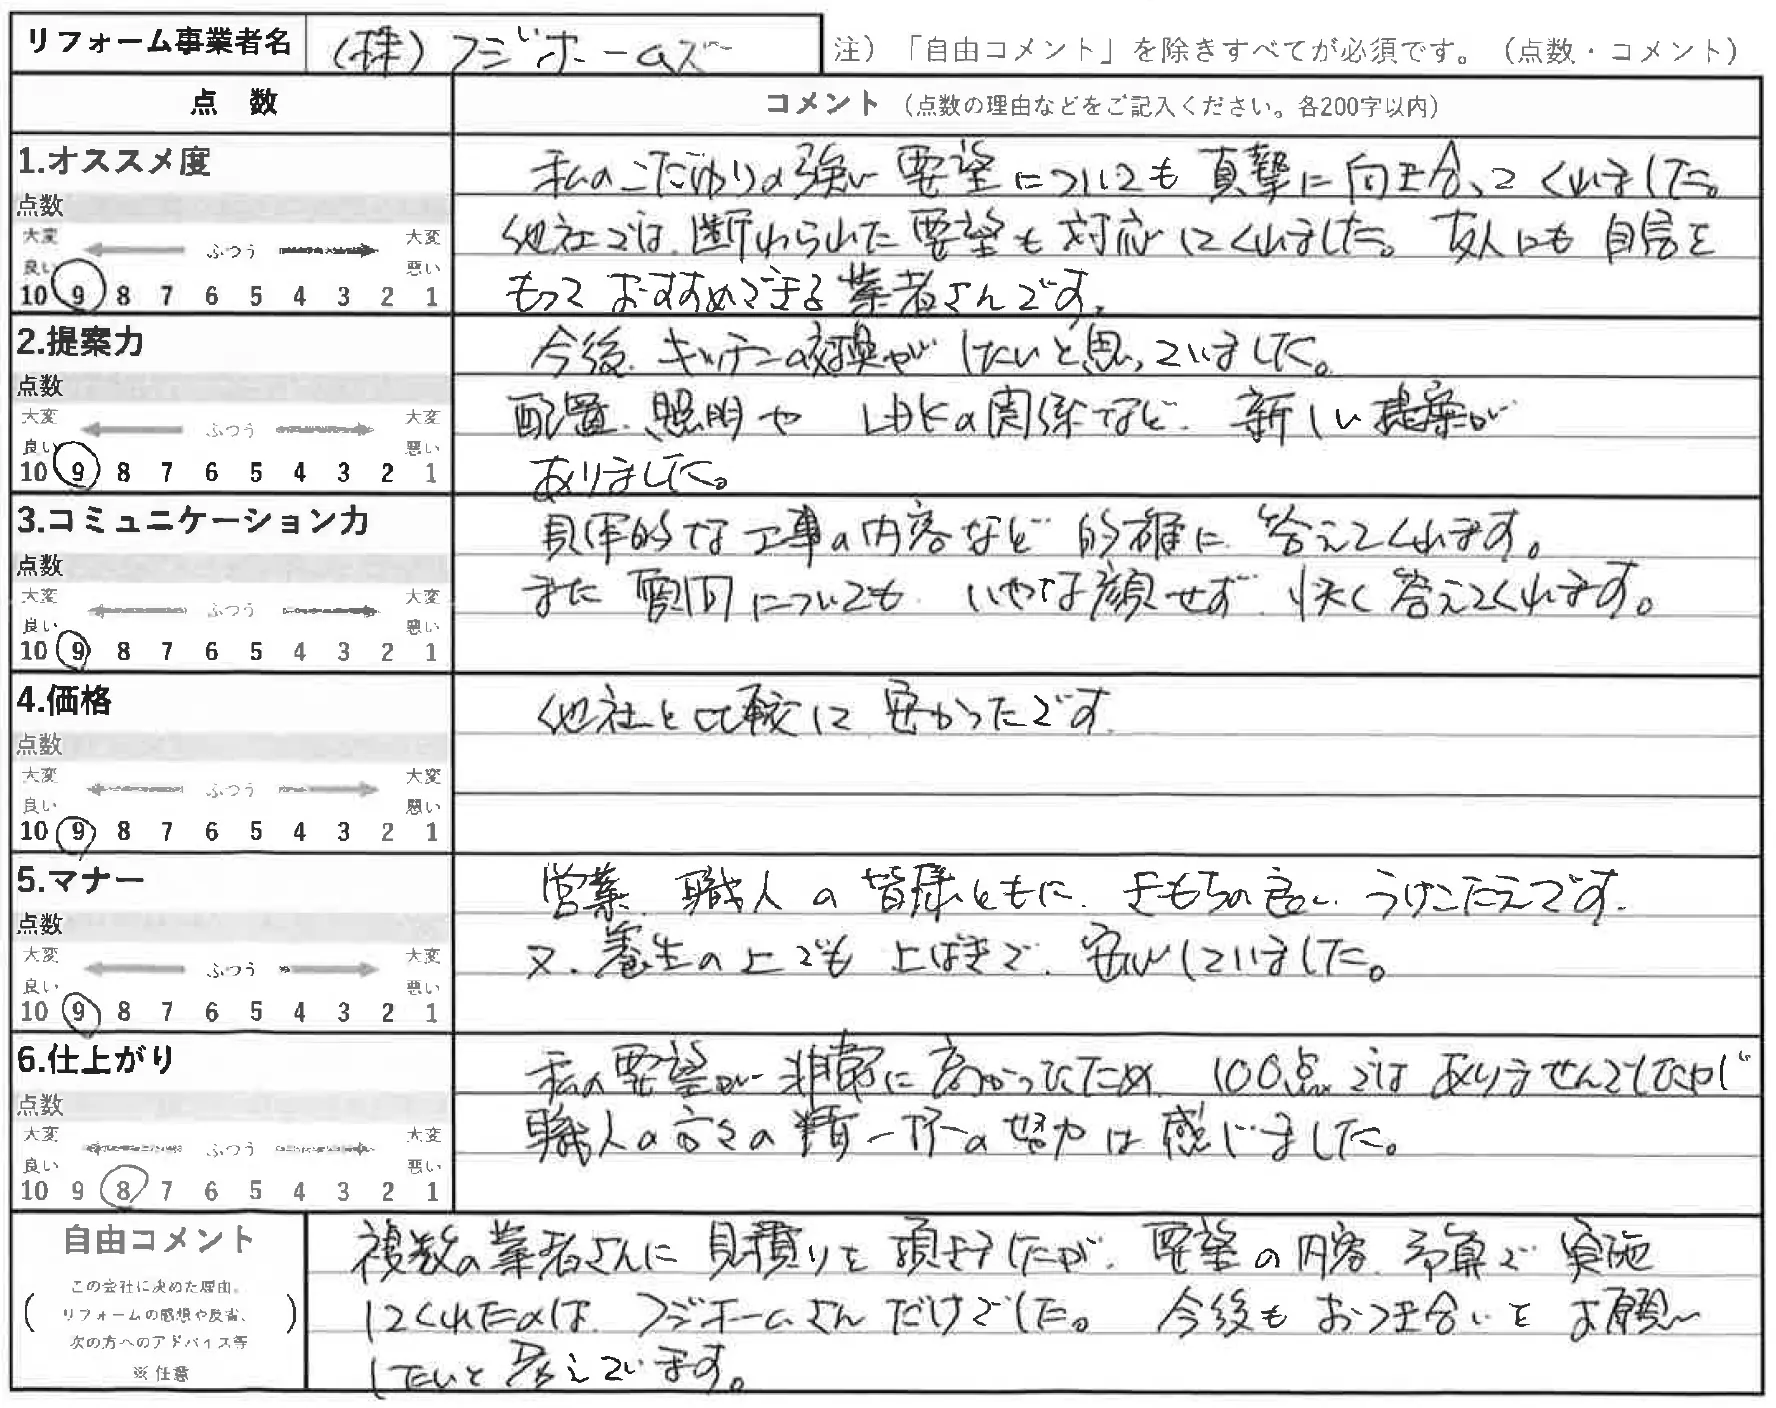 リフォーム事業者名 (株)フジホームズ 注）「自由コメント」を除きすべてが必須です。（点数・コメント）
点 数 コメント（点数の理由などをご記入ください。各200字以内）
1.オススメ度
点数
大変 良い ふつう 大変 悪い
10 9 8 7 6 5 4 3 2 1
私のこだわりの強い要望についても真摯に向き合ってくれました。
他社では、断わられた要望も対応してくれました。友人にも自信を
もっておすすめできる業者さんです。
2.提案力
点数
大変 良い ふつう 大変 悪い
10 9 8 7 6 5 4 3 2 1
今後、キッチンの交換がしたいと思っていました。
配置、照明や LDKの関係など、新しい提案が
ありました。
3.コミュニケーション力
点数
大変 良い ふつう 大変 悪い
10 9 8 7 6 5 4 3 2 1
具体的な工事の内容など的確に答えてくれます。
また質問についても、いやな顔せず、快く答えてくれます。
4.価格
点数
大変 良い ふつう 大変 悪い
10 9 8 7 6 5 4 3 2 1
他社と比較して安かったです。
5.マナー
点数
大変 良い ふつう 大変 悪い
10 9 8 7 6 5 4 3 2 1
営業、職人の皆様ともに、きもちの良いうけこたえです。
又、養生の上でも上ばきで、安心していました。
6.仕上がり
点数
大変 良い ふつう 大変 悪い
10 9 8 7 6 5 4 3 2 1
私の要望が非常に高かったため、100点ではありませんでしたが
職人の方々の精一杯の努力は感じました。
自由コメント
（この会社に決めた理由、
リフォームの感想や反省、
次の方へのアドバイス等）
※任意
複数の業者さんに見積りを頂きましたが、要望の内容、予算で実施
してくれたのは、フジホームさんだけでした。今後もおつき合いをお願い
したいと考えています。